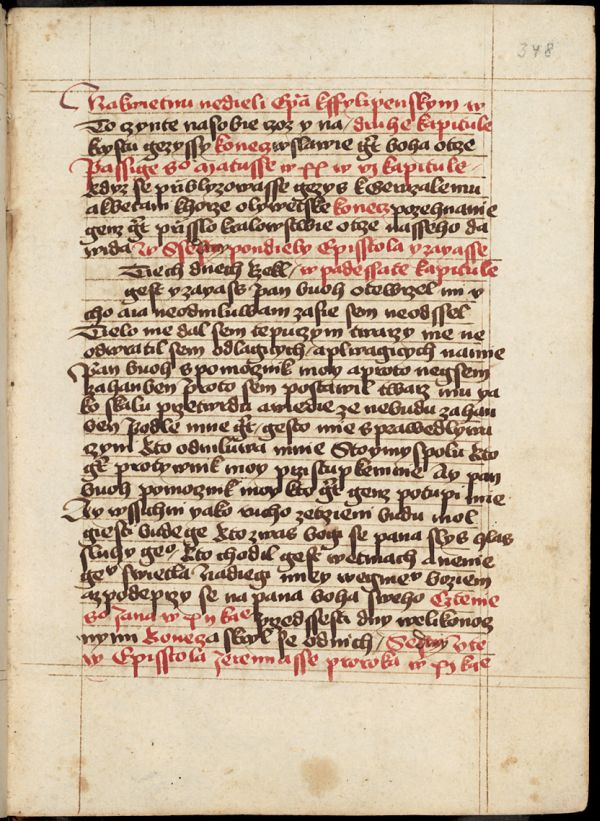 348
Nakwietnu nedieli Epřa kffylipenskym w
To czynte nasobie coz y na / druhe kapitule
krystu gezyssy konecz wslawie gt boha otze
Passige so Matusse w xx w vj kapitule
kdyz se přiblyzowasse gezys k Gewzalemu
a kbetani khorze oliwetske konecz pozehnanie
genz gt přisslo kralowstwie otze nasseho da
wida w Sser pondiely Episstola yzayasse
Tiech dnech Rzekl / w padessate kapitule
gest yzayass Pan buoh otewrzel mi v
cho aia neodmluwam zasie sem neodssel
Tielo me dal sem tepuczym twarzy me ne
odwratil sem odlagicych / a pliwagicych namne
Pan buoh s pomocznik moy a proto negsem
zahanben Proto sem postawil twarz mu ya
ko skalu przetwrdu a wiedie ze nebudu zahan
ben Podle mne gt / gesto mie sprawedlywu
czyni kto odmluwa mnie Stoymyspolu kto
gt protywnik moy przistup kemnie Ay pan
buoh pomocznik moy kto gt genz potupi mie
Ay wssichni yako rucho zetrziem budu mol
giesti bude ge kto zwas bogi se pana slyss hlas
sluhy geº kto chodil gest wetmach a nenie
geº swietla nadiegi miey wegmeº boziem
azpodeprzy se na pana boha sweho Cztenie
so Jana w xij kae przedssesti dny welikonocz
nymi Konecz a skryl se odnich /
w Episstola Jeremiasse proroka w xj kae